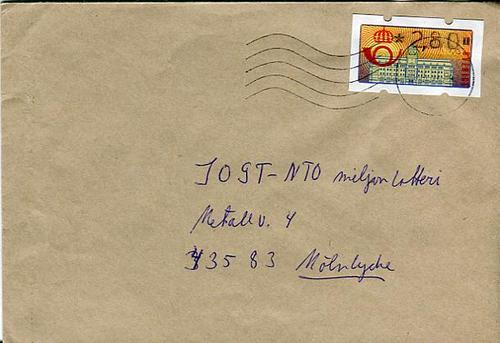 *2,80
SVERIGE
JOGT-NTO miljonlotteri
Metallv. 4
435 83 Mölnlycke